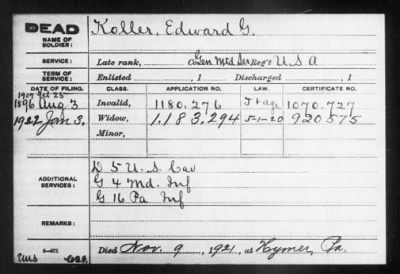 DEAD
NAME OF SOLDIER: Koller, Edward G.
SERVICE: Late rank, Co. Gen Med Ser Reg't U S A
TERM OF SERVICE: Enlisted , 1 Discharged , 1
DATE OF FILING. CLASS. APPLICATION NO. LAW. CERTIFICATE NO.
1907 Oct 25
1896 Aug. 3 Invalid, 1180,276 J + age 1070,727
1922 Jan 3. Widow, 1,183,294 5-1-20 920575
Minor,
ADDITIONAL SERVICES: D 5 U. S. Cav
G 4 Md. Inf
G 16 Pa Inf
REMARKS:
Died Nov. 9, 1921, at Hymer, Pa.